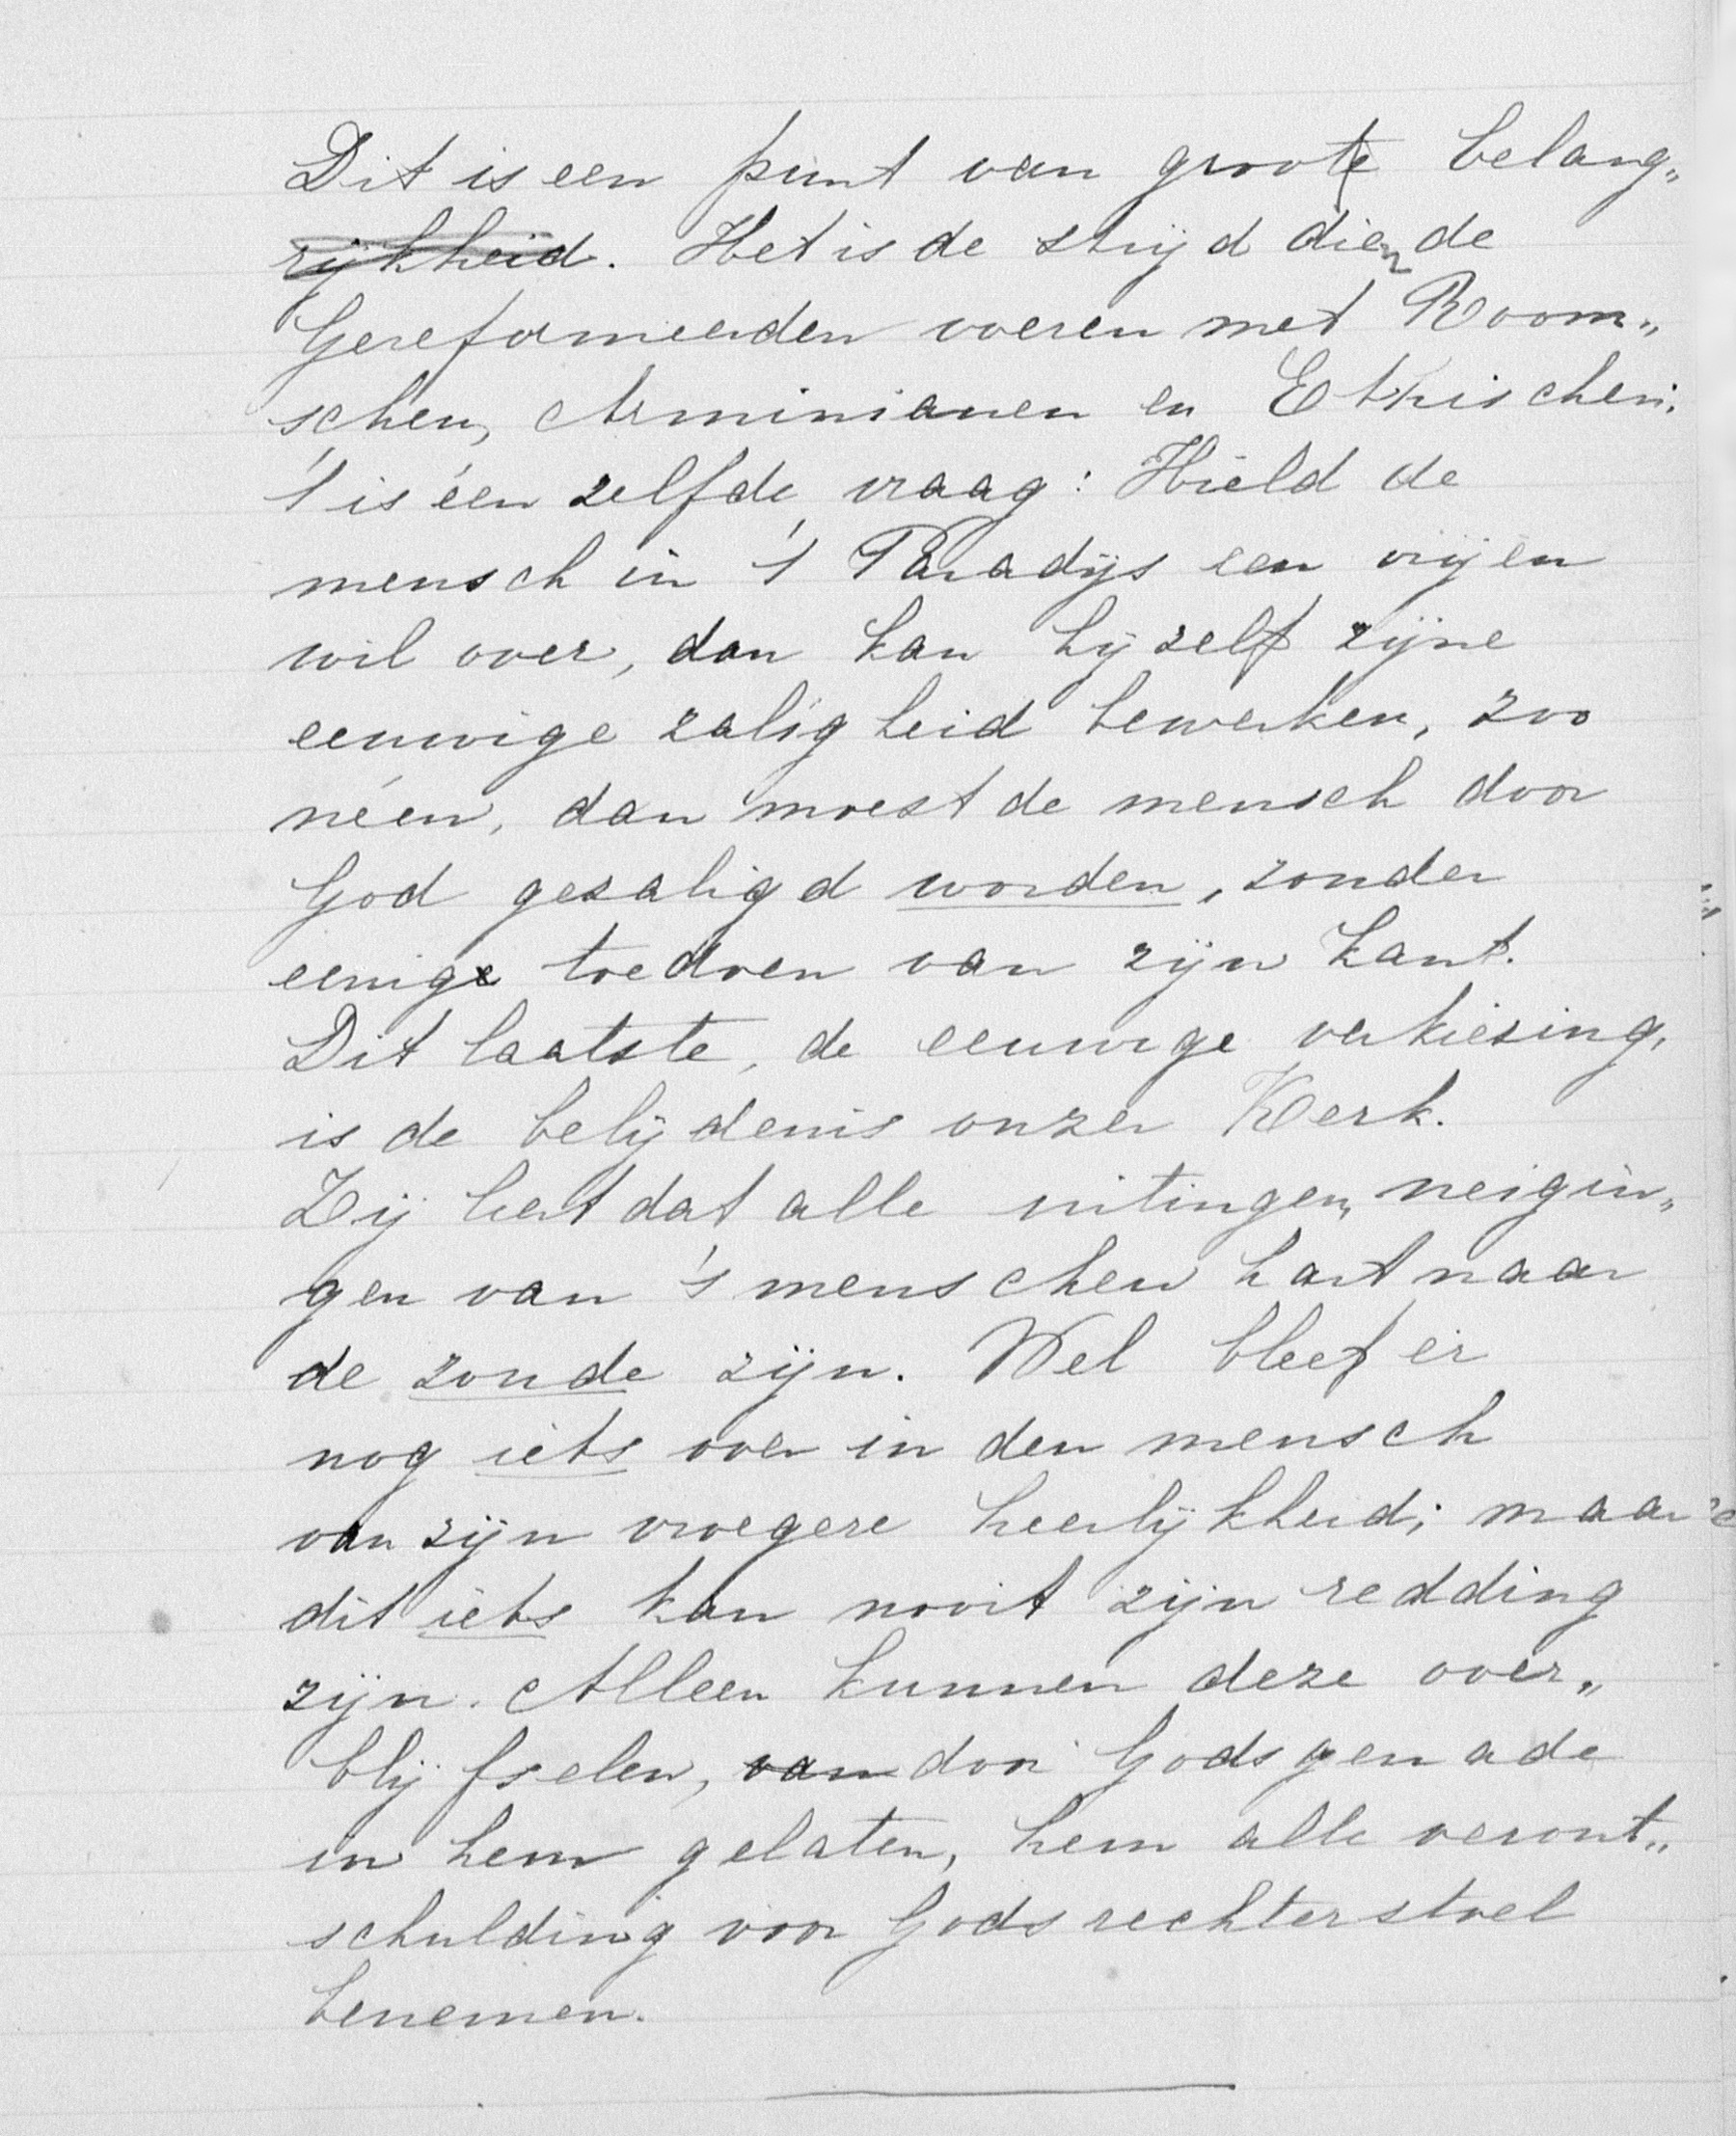 Dit is een punt van groote belang„
rijkheid. Het is de strijd dien de
Gereformeerden voeren met Room„
schen, Arminianen en Ethischen;
't is één zelfde vraag: Hield de
mensch in 't Paradijs een vrijen
wil over, dan kan hij zelf zijne
eeuwige zaligheid bewerken, zoo
néen, dan moest de mensch door
God gezaligd worden, zonder
eenige toedoen van zijn kant.
Dit laatste, de eeuwige verkiezing,
is de belijdenis onzer Kerk.
Zij leert dat alle uitingen, neigin„
gen van 's menschen hart naar
de zonde zijn. Wel bleef er
nog iets over in den mensch
van zijn vroegere heerlijkheid; maar
dit iets kan nooit zijn redding
zijn. Alleen kunnen deze over„
blijfselen, van door Gods genade
in hem gelaten, hem alle veront„
schulding voor Gods rechterstoel
benemen.